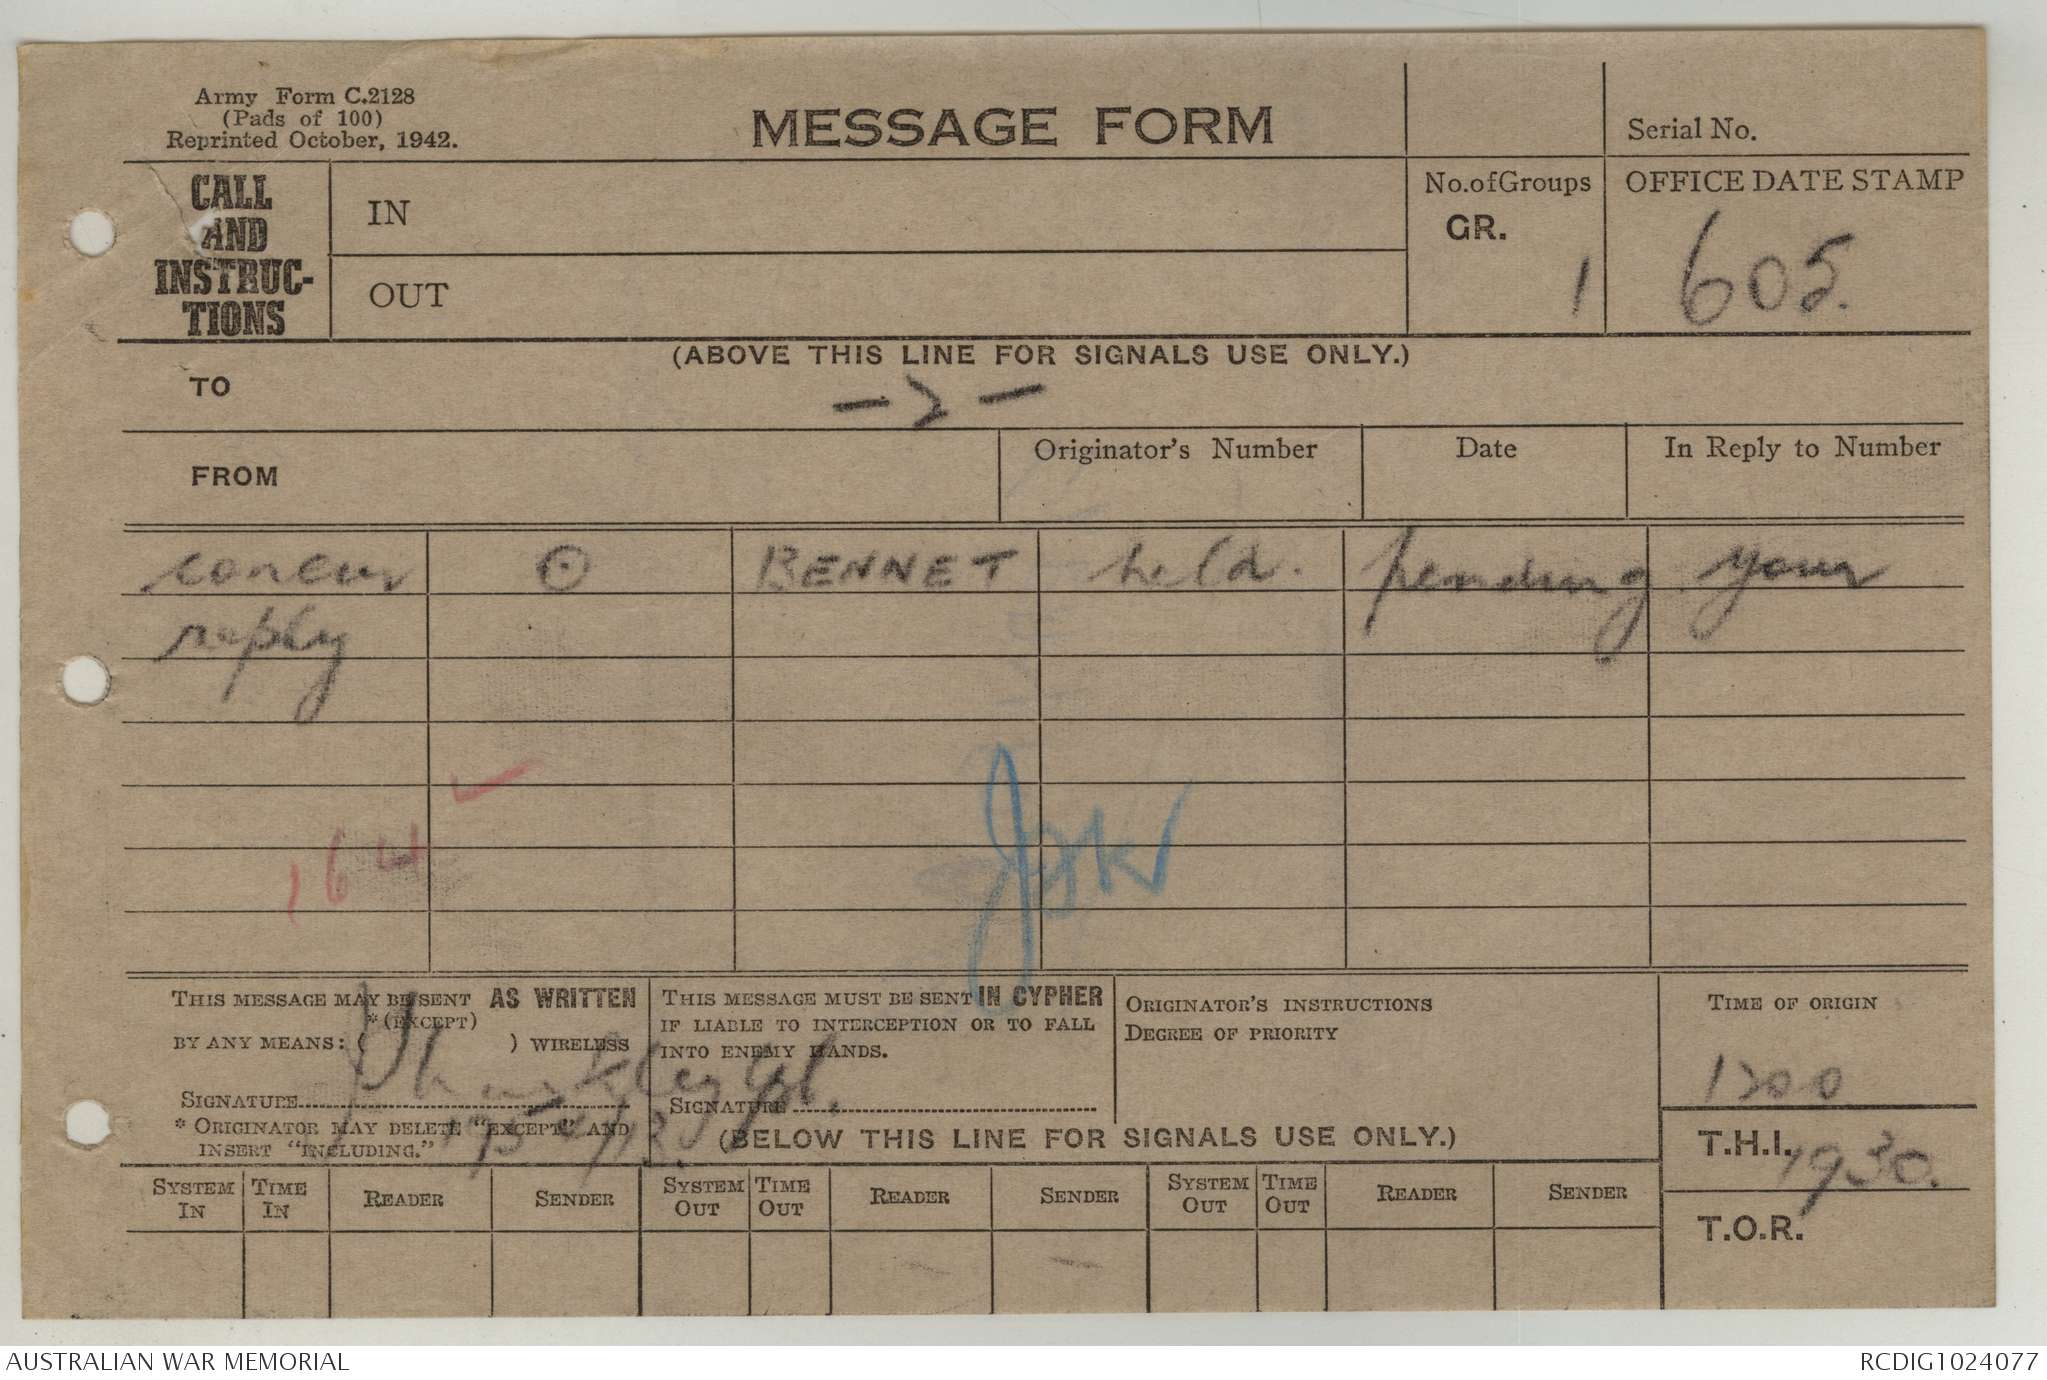 Army Form C.2128
(Pads of 100)
Reprinted October, 1942.
MESSAGE FORM
Serial No.
CALL
AND
INSTRUC-
TIONS
IN
OUT
No.ofGroups
GR.
1
OFFICE DATE STAMP
605.
(ABOVE THIS LINE FOR SIGNALS USE ONLY.)
TO
- 2 -
FROM
Originator's Number
Date
In Reply to Number
concur ⊙ BENNET held. pending your
reply
164
THIS MESSAGE MAY BE SENT AS WRITTEN
*(EXCEPT)
BY ANY MEANS: ( ) WIRELESS
SIGNATURE
* ORIGINATOR MAY DELETE "EXCEPT" AND
INSERT "INCLUDING."
THIS MESSAGE MUST BE SENT IN CYPHER
IF LIABLE TO INTERCEPTION OR TO FALL
INTO ENEMY HANDS.
SIGNATURE
ORIGINATOR'S INSTRUCTIONS
DEGREE OF PRIORITY
TIME OF ORIGIN
1200
(BELOW THIS LINE FOR SIGNALS USE ONLY.)
T.H.I.
1930.
T.O.R.
SYSTEM IN
TIME IN
READER
SENDER
SYSTEM OUT
TIME OUT
READER
SENDER
SYSTEM OUT
TIME OUT
READER
SENDER
AUSTRALIAN WAR MEMORIAL
RCDIG1024077